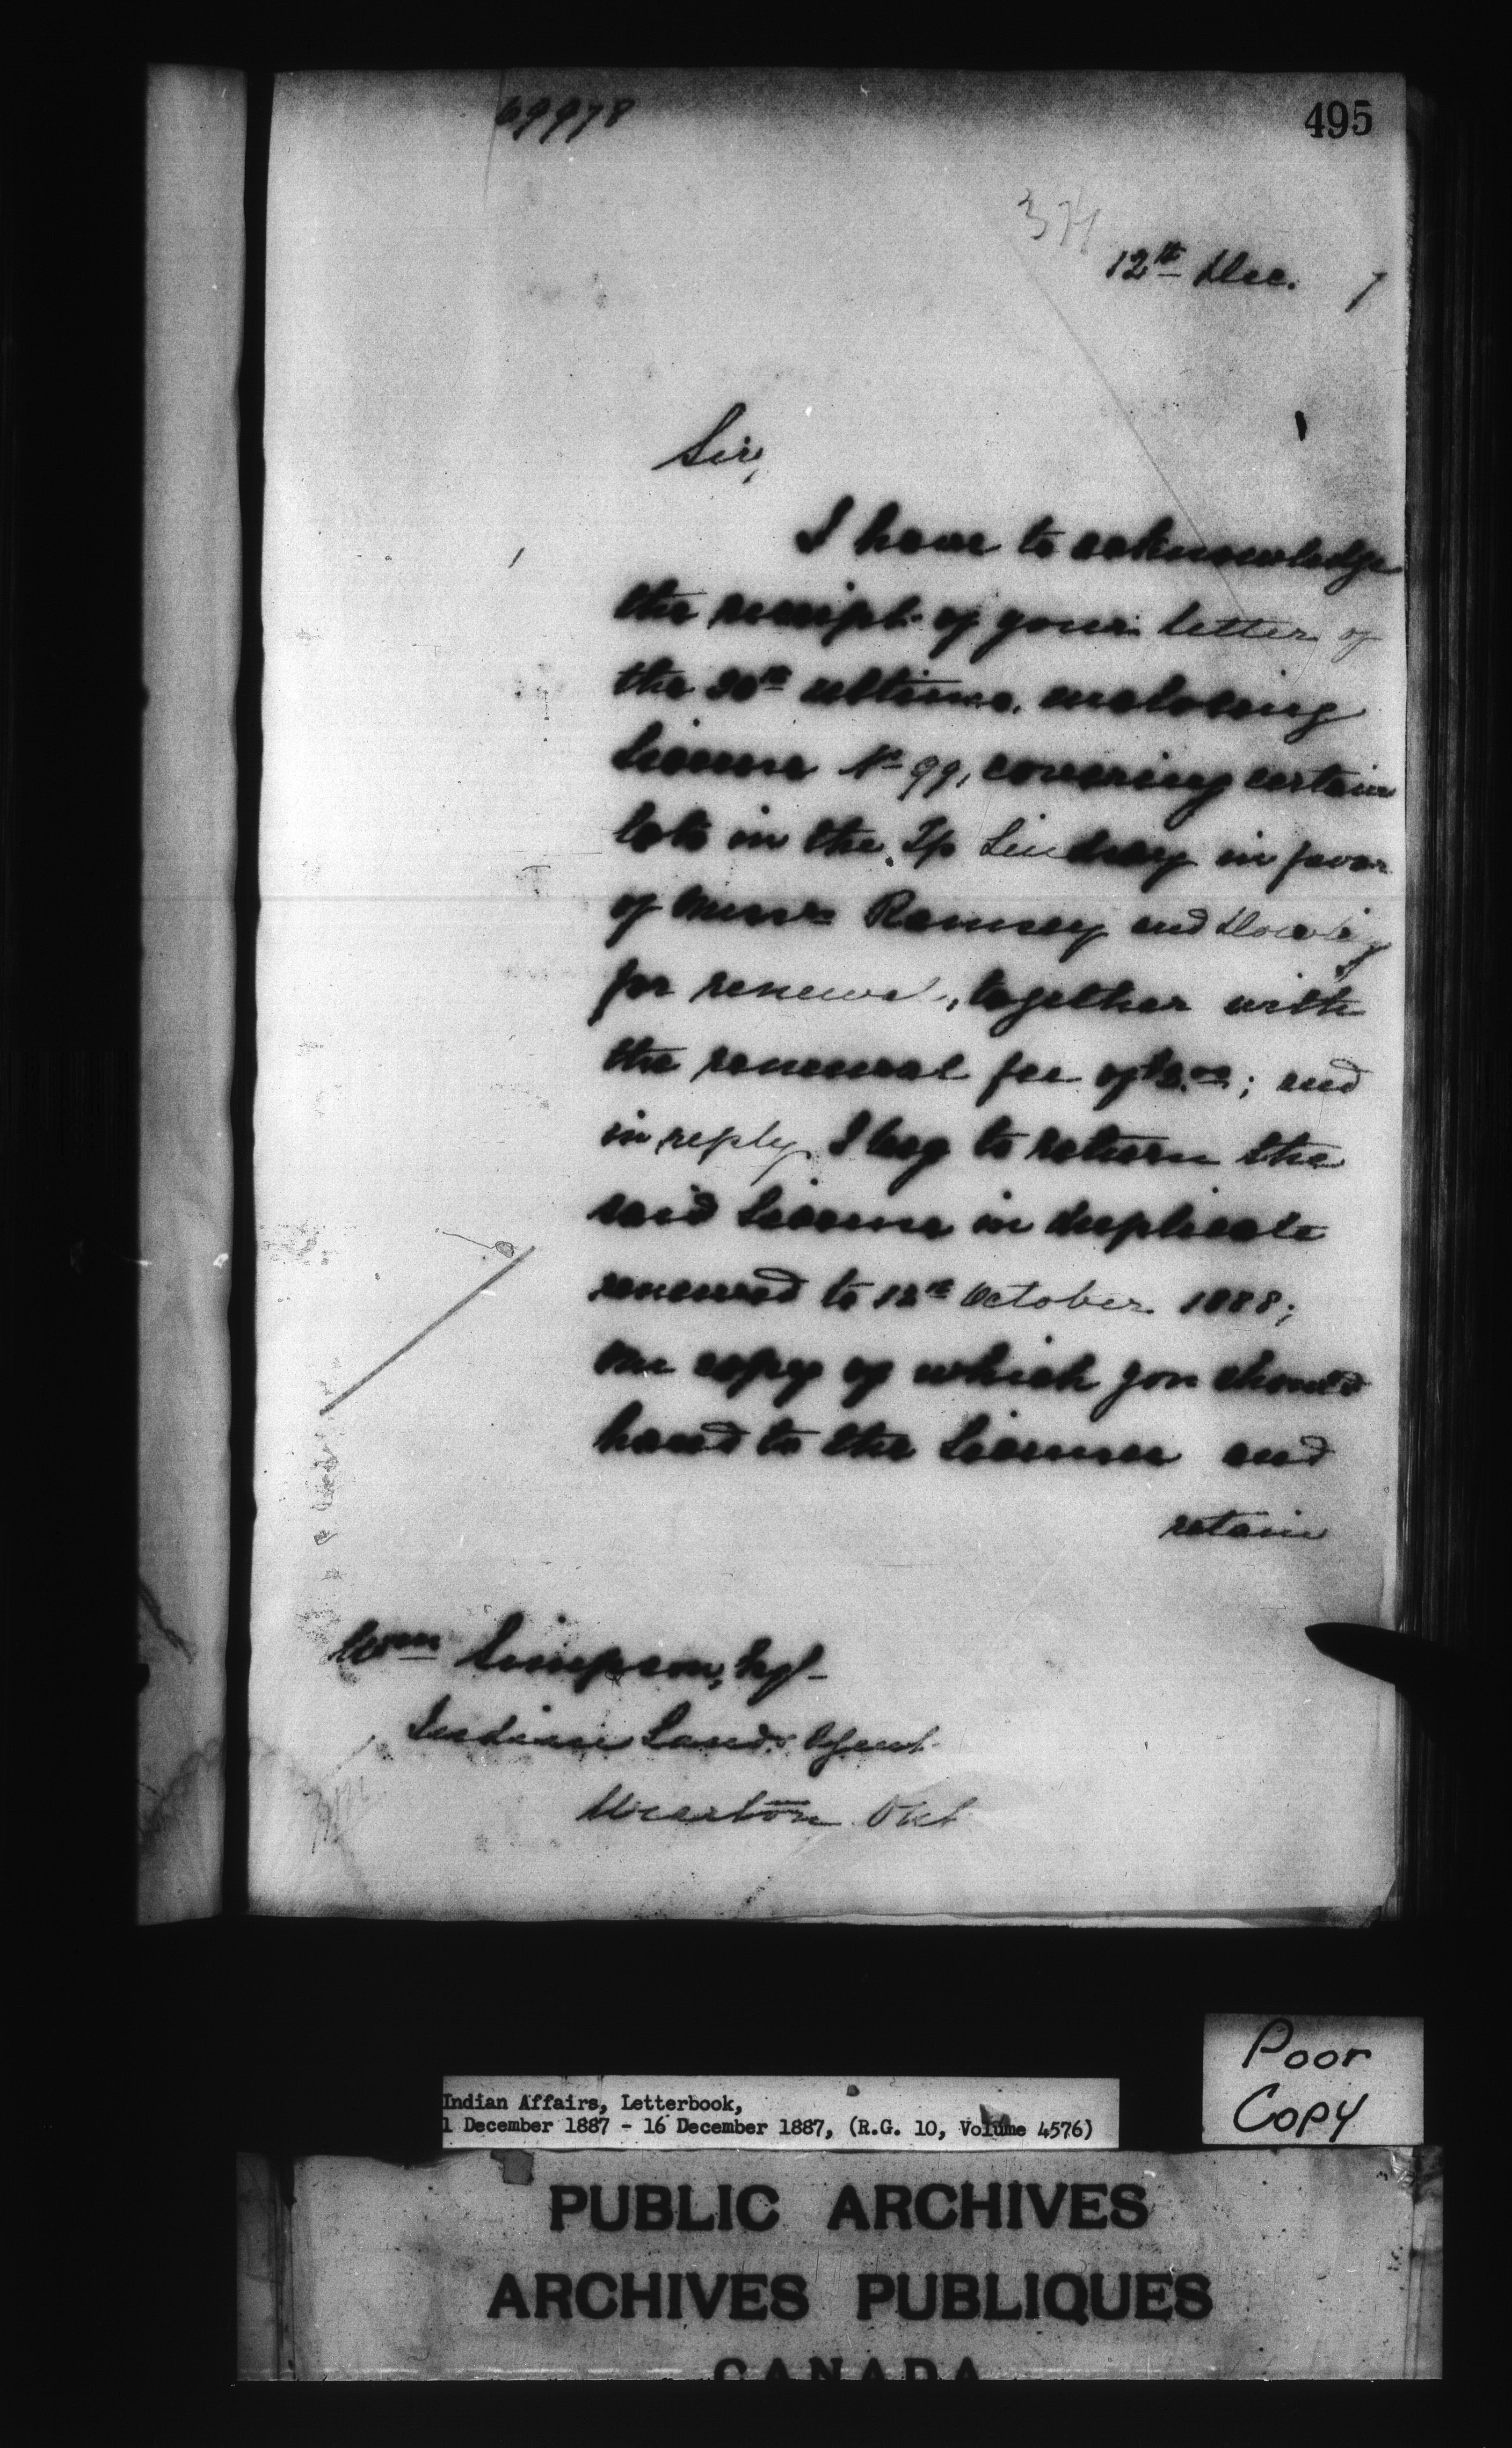 69978
495
374
12th Dec. 7
Sir,
I have to acknowledge
the receipt of your letter of
the 30th ultimo, enclosing
License No 99, covering certain
lots in the Tp Lindsay in favor
of Messrs Ramsey and
for renewal, together with
the renewal fee of $2.00; and
in reply I beg to return the
said License in duplicate
renewed to 12th October 1888;
one copy of which you should
hand to the Licensee and
retain
Wm Simpson, Esq
Indian Lands Agent
Wiarton Ont
Poor
Copy
Indian Affairs, Letterbook,
1 December 1887 - 16 December 1887, (R.G. 10, Volume 4576)
PUBLIC ARCHIVES
ARCHIVES PUBLIQUES
CANADA